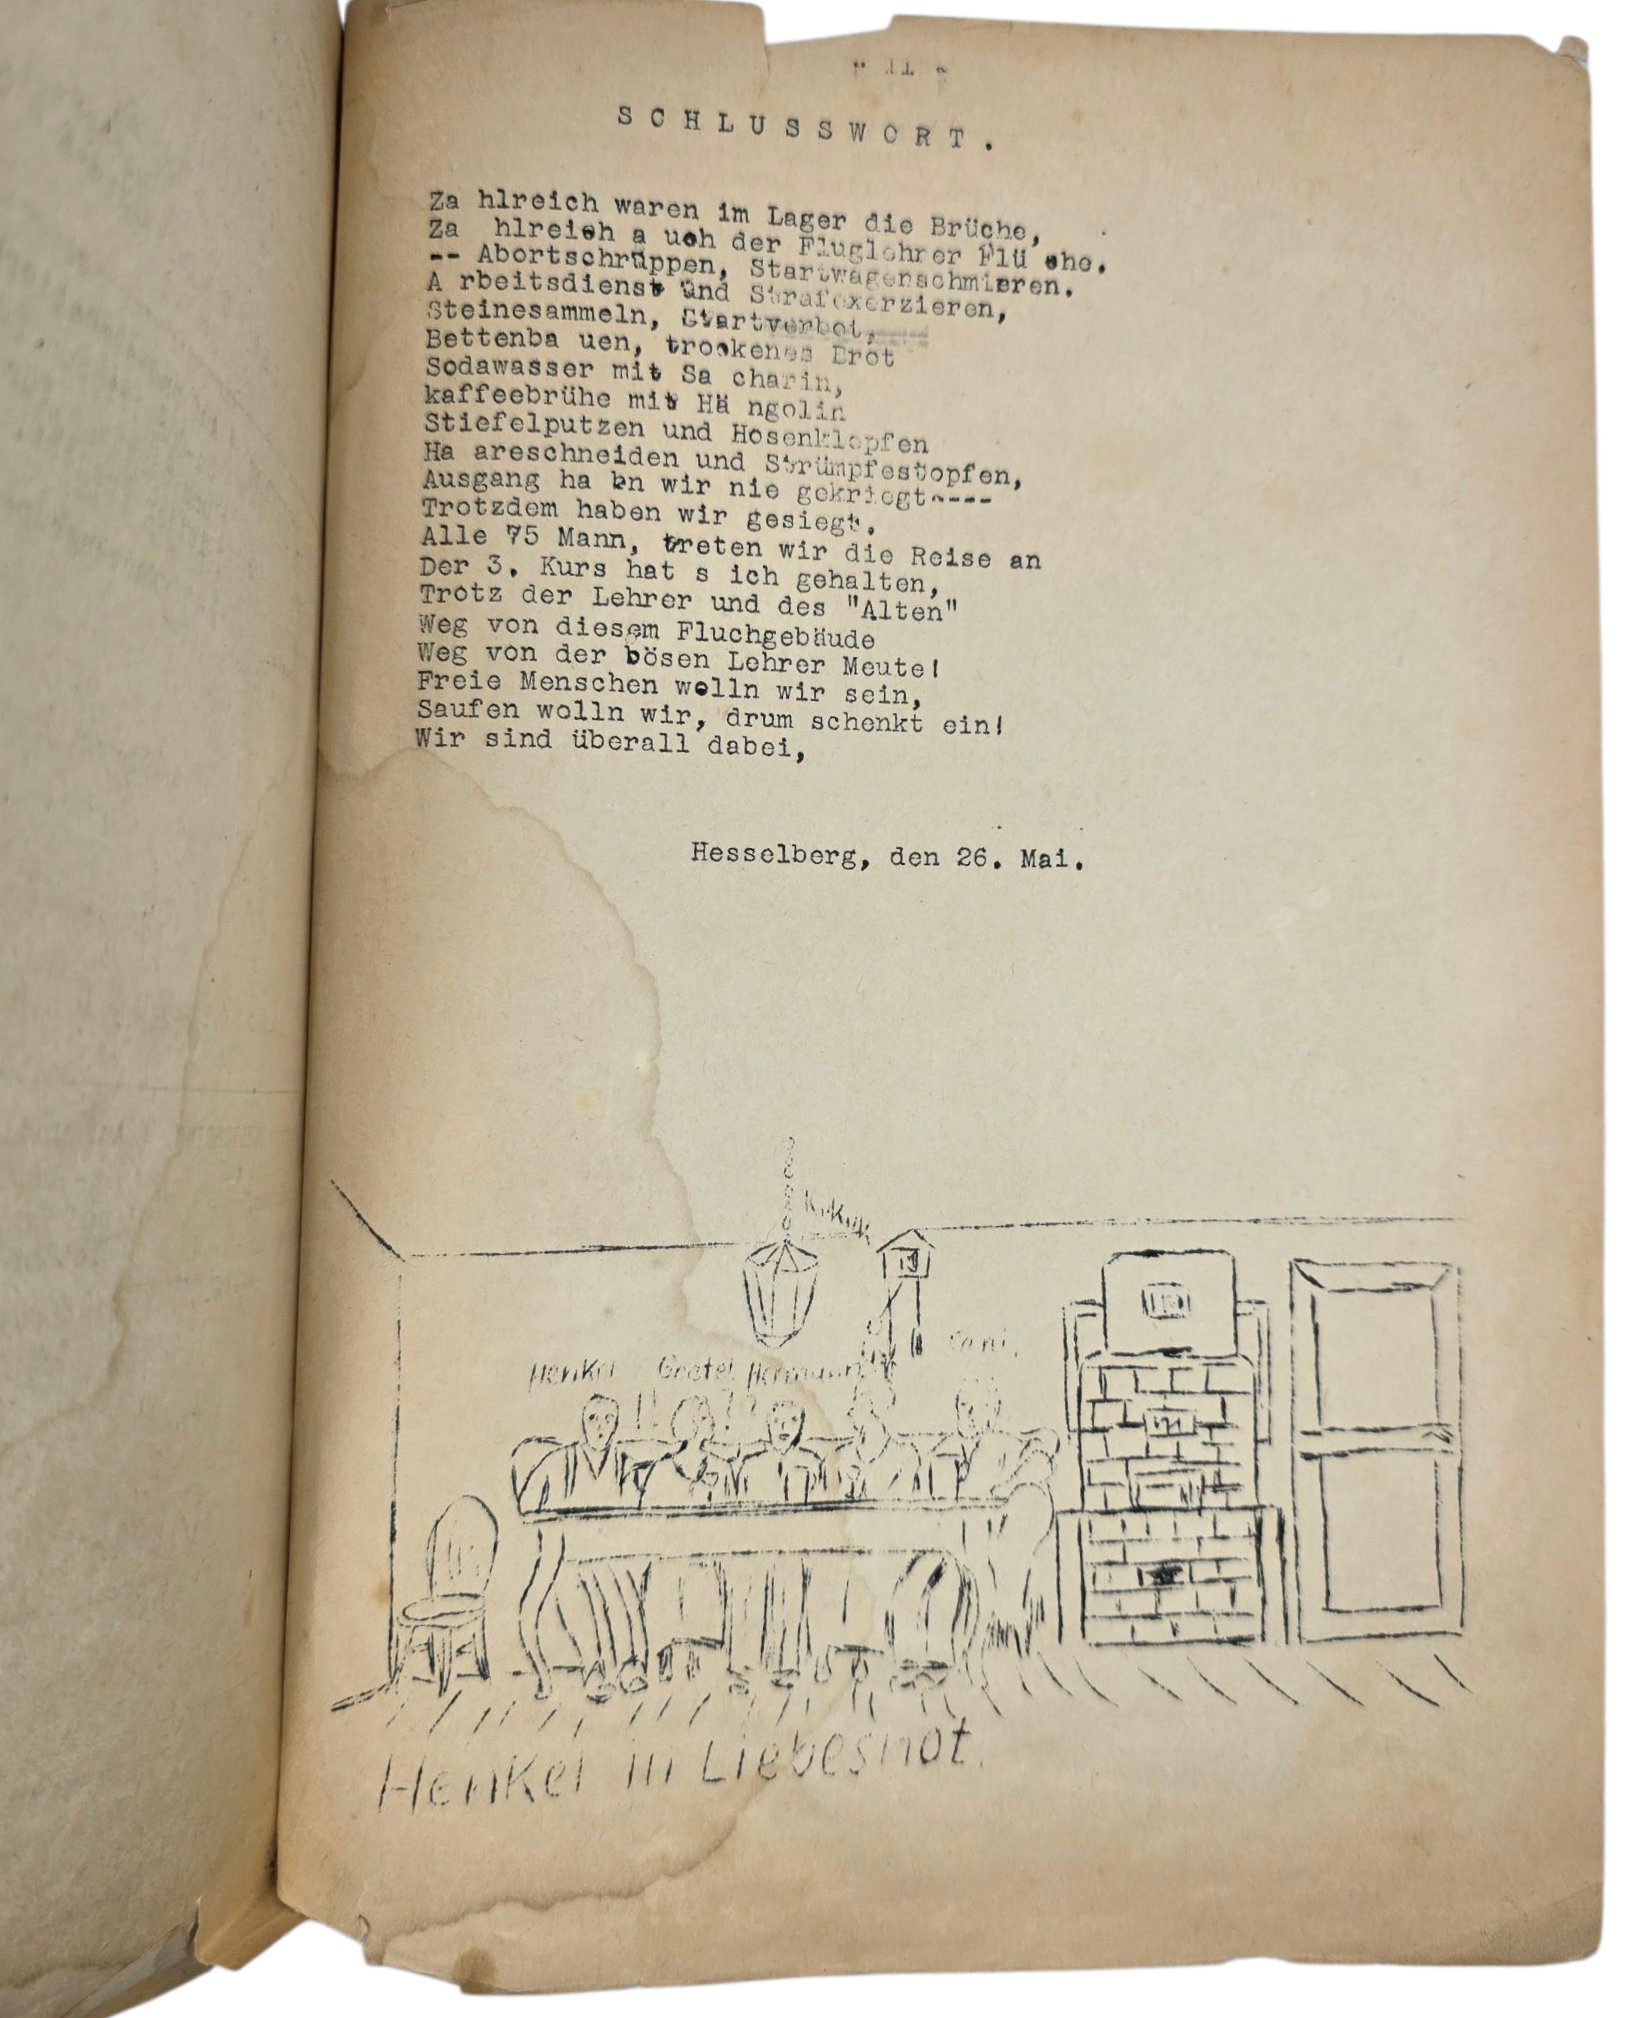 - 11 -
SCHLUSSWORT.
Za hlreich waren im Lager die Brüche,
Za hlreich a uch der Fluglehrer Flü che.
-- Abortschruppen, Startwagenschmieren.
A rbeitsdienst und Strafexerzieren,
Steinesammeln, Startverbot,
Bettenba uen, trockenes Brot
Sodawasser mit Sa charin,
kaffeebrühe mit Hä ngolin
Stiefelputzen und Hosenklopfen
Ha areschneiden und Strümpfestopfen,
Ausgang ha bn wir nie gekriegt----
Trotzdem haben wir gesiegt.
Alle 75 Mann, treten wir die Reise an
Der 3. Kurs hat s ich gehalten,
Trotz der Lehrer und des "Alten"
Weg von diesem Fluchgebäude
Weg von der bösen Lehrer Meute!
Freie Menschen wolln wir sein,
Saufen wolln wir, drum schenkt ein!
Wir sind überall dabei,
Hesselberg, den 26. Mai.
Henkel Gretel Hermann
Henkel in Liebesnot.